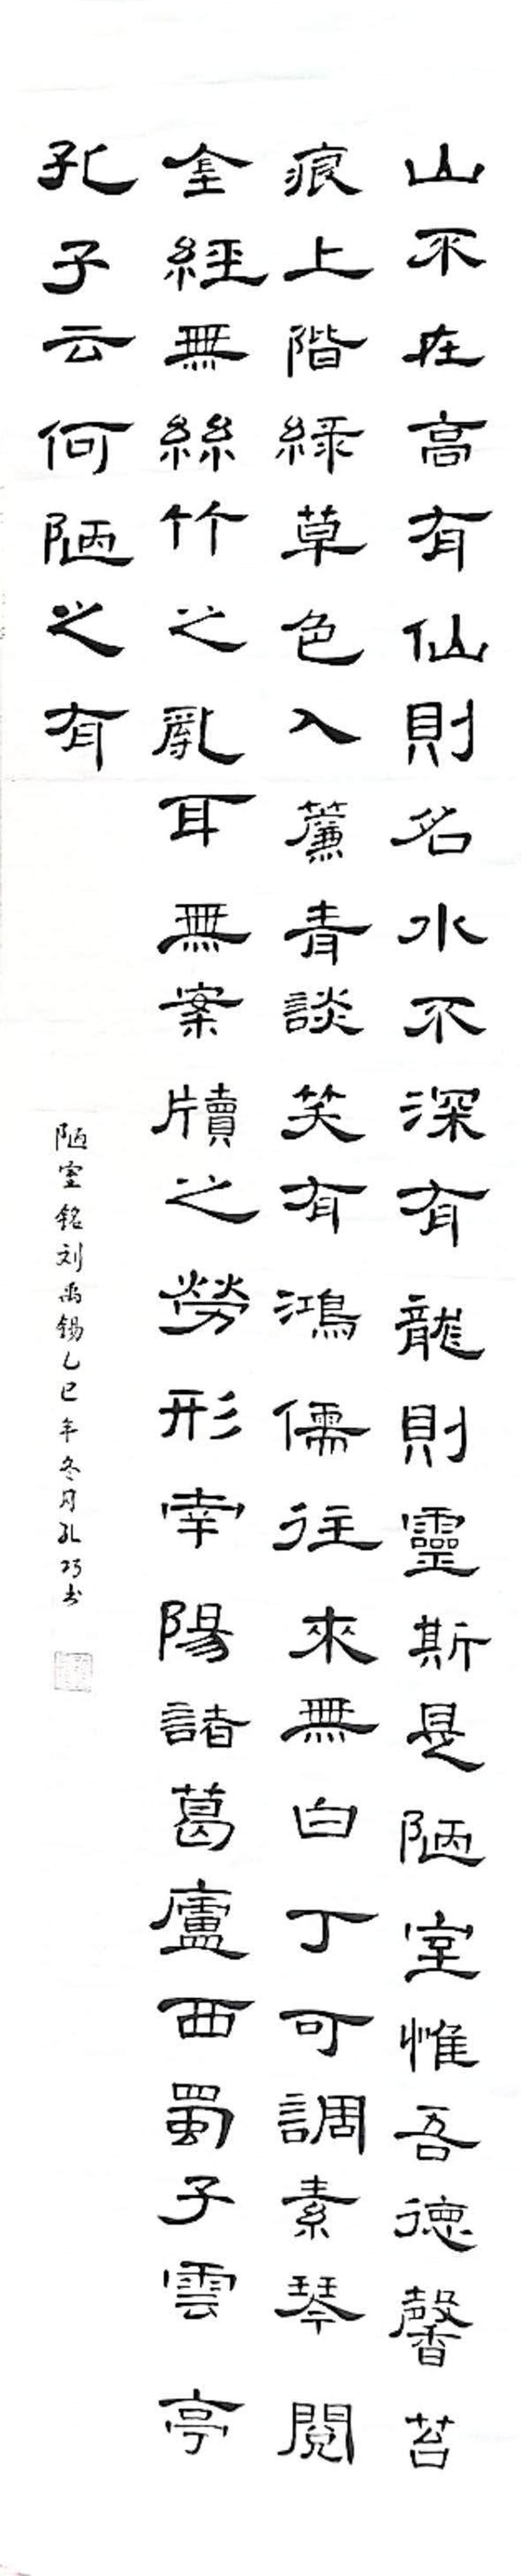 山不在高有仙則名水不深有龍則靈斯是陋室惟吾德馨苔
痕上階緑草色入薕青談笑有鴻儒往來無白丁可調素琴閱
金經無絲竹之亂耳無案牘之勞形南陽諸葛廬西蜀子雲亭
孔子云何陋之有
陋室銘刘禹锡乙巳年冬月孔巧书